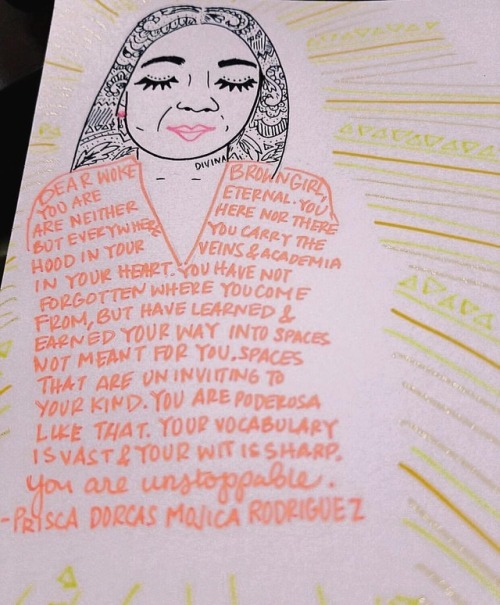 DIVINA
DEAR WOKE BROWN GIRL,
YOU ARE ETERNAL. YOU
ARE NEITHER HERE NOR THERE
BUT EVERYWHERE YOU CARRY THE
HOOD IN YOUR VEINS & ACADEMIA
IN YOUR HEART. YOU HAVE NOT
FORGOTTEN WHERE YOU COME
FROM, BUT HAVE LEARNED &
EARNED YOUR WAY INTO SPACES
NOT MEANT FOR YOU. SPACES
THAT ARE UNINVITING TO
YOUR KIND. YOU ARE PODEROSA
LIKE THAT. YOUR VOCABULARY
IS VAST & YOUR WIT IS SHARP.
You are unstoppable.
-PRISCA DORCAS MOJICA RODRIGUEZ